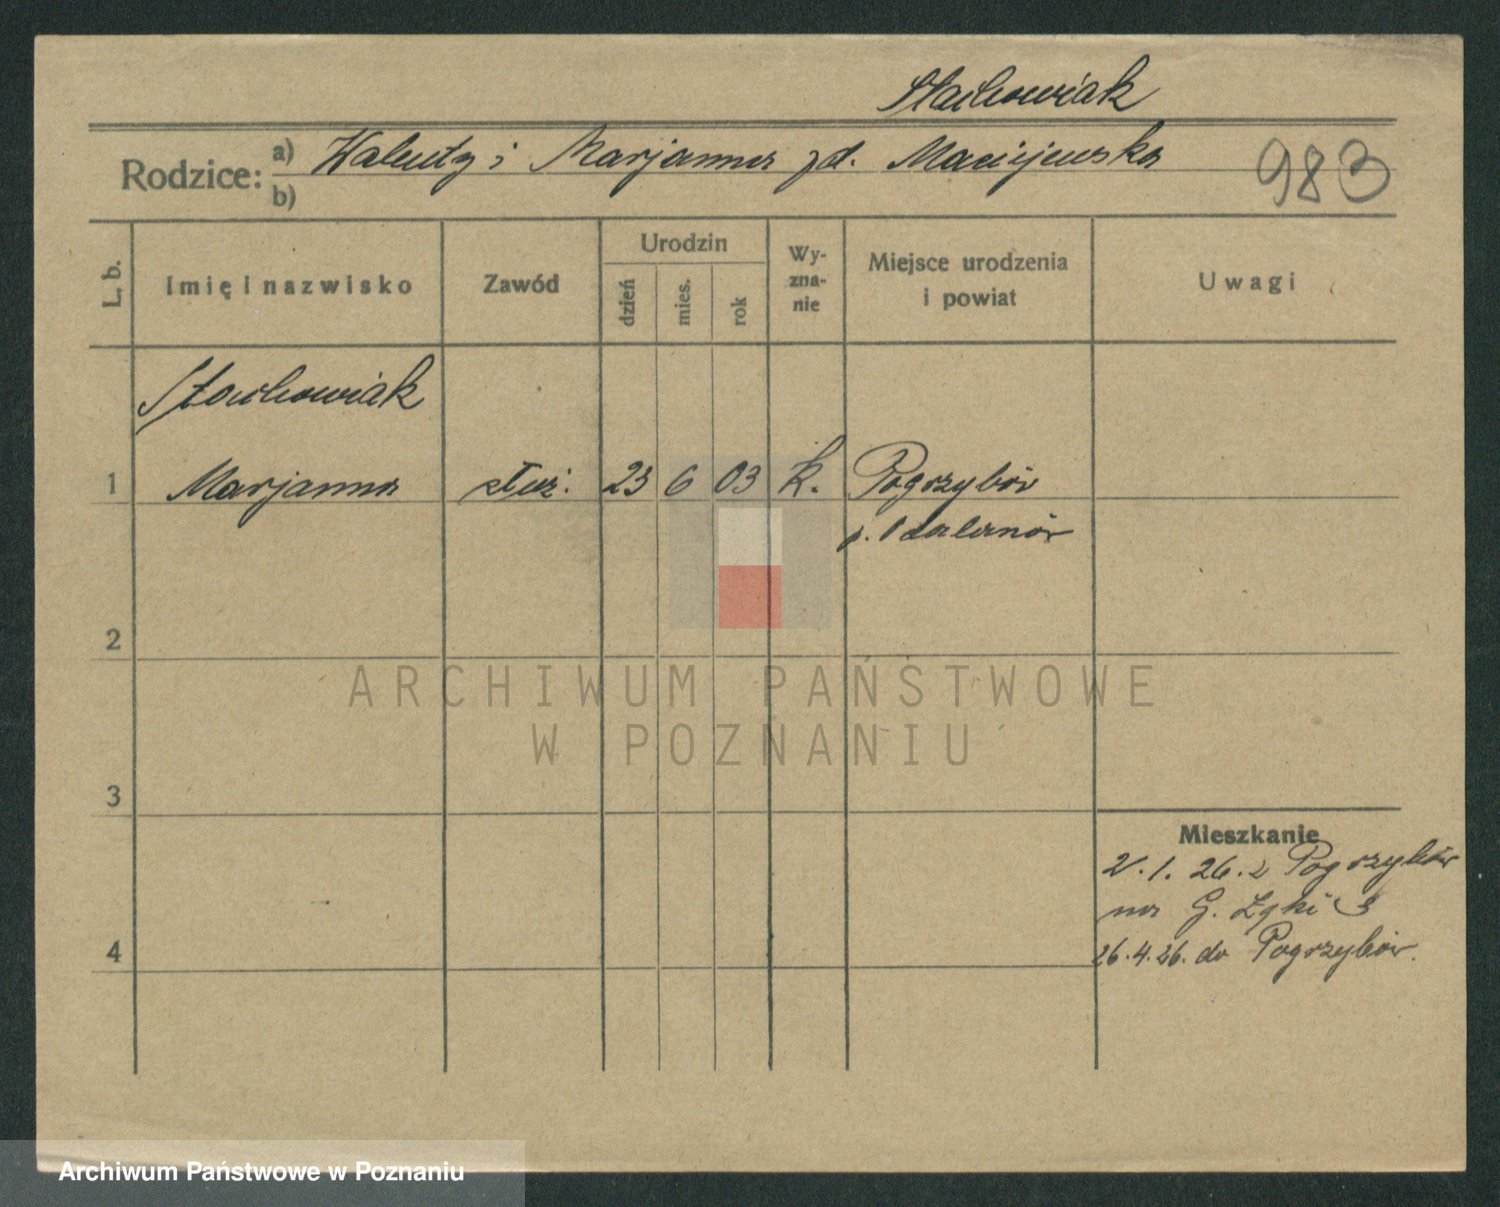 Stachowiak
Rodzice: a) Walenty i Marjanna zd. Maciejewska
b)
983
L. b.
Imię i nazwisko
Zawód
Urodzin
dzień
mies.
rok
Wy-
zna-
nie
Miejsce urodzenia
i powiat
Uwagi
Stachowiak
1 Marjanna służ. 23 6 03 k. Pogrzybów
p. Odolanów
2
3
4
Mieszkanie
2.1.26. z Pogrzybów
na G.
26.4.26. do Pogrzybów.
ARCHIWUM PAŃSTWOWE
W POZNANIU
Archiwum Państwowe w Poznaniu